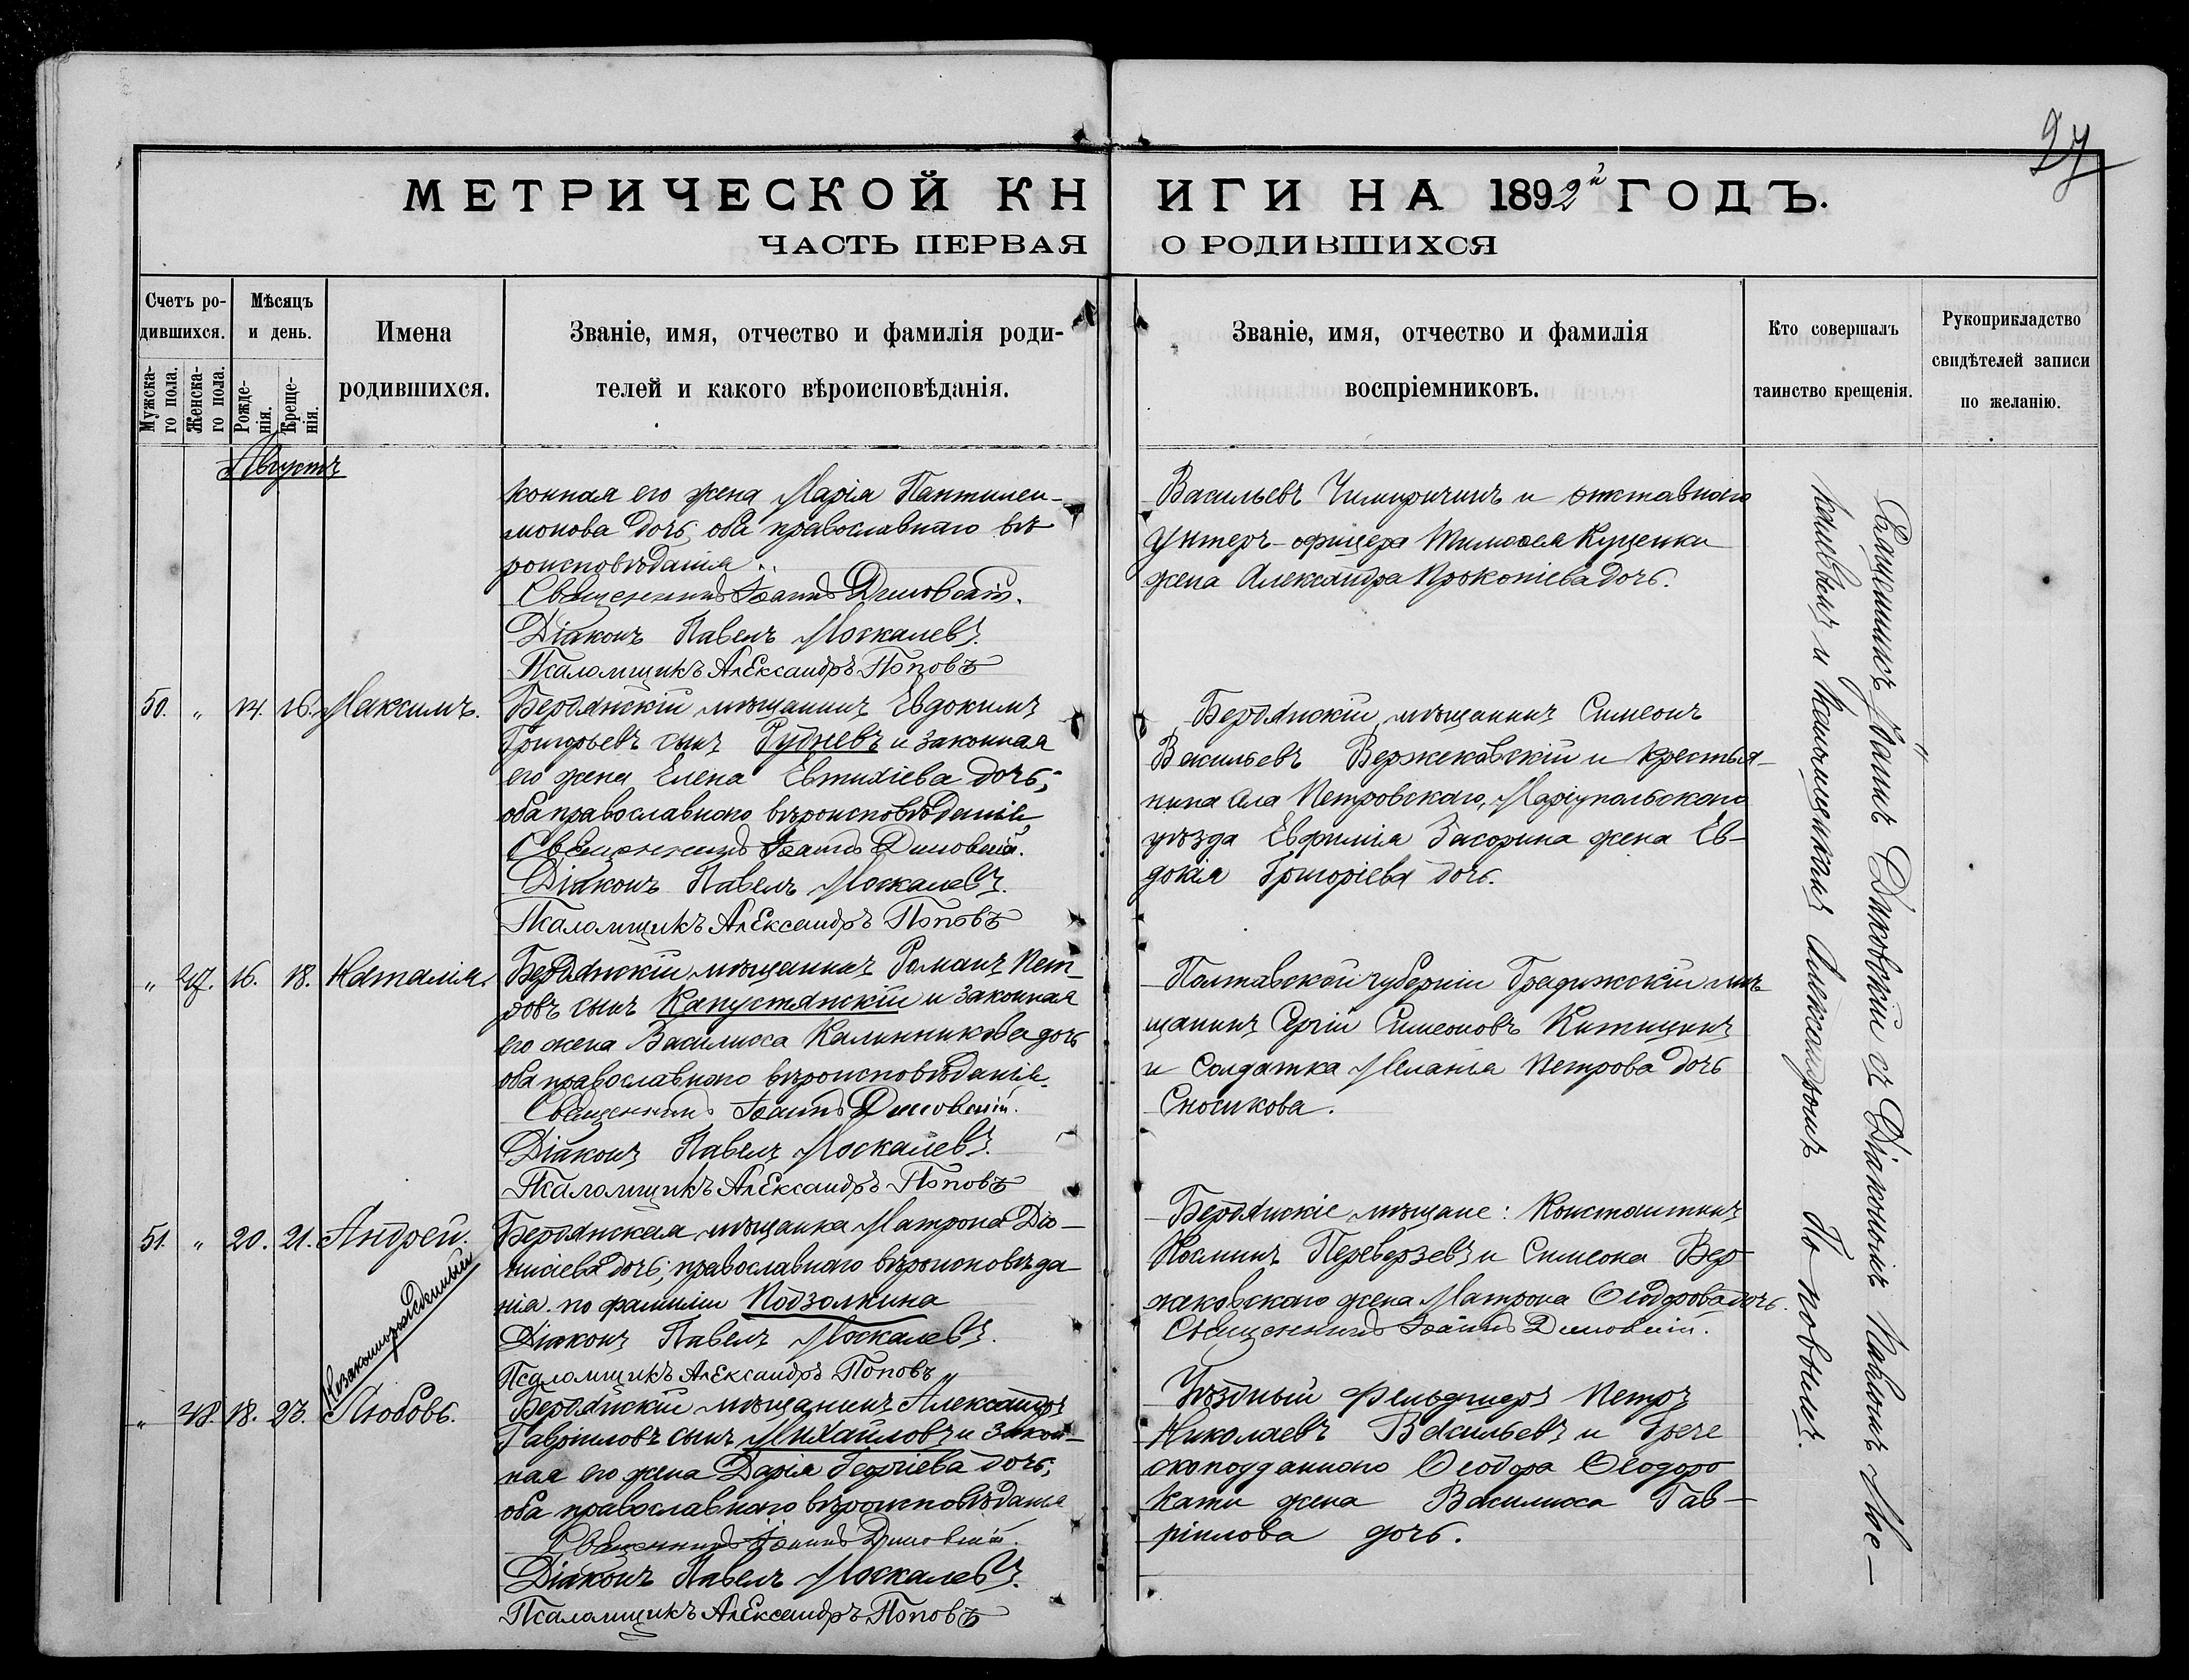 27
МЕТРИЧЕСКОЙ КНИГИ НА 1892й ГОДЪ.
ЧАСТЬ ПЕРВАЯ О РОДИВШИХСЯ
Счетъ ро-
дившихся.
Мужска-
го пола.
Женска-
го пола.
Мѣсяцъ
и день.
Рожде-
нія.
Креще-
нія.
Имена
родившихся.
Званіе, имя, отчество и фамилія роди-
телей и какого вѣроисповѣданія.
Званіе, имя, отчество и фамилія
воспріемниковъ.
Кто совершалъ
таинство крещенія.
Рукоприкладство
свидѣтелей записи
по желанію.
Августъ
конная его жена Марія Пантилеи-
монова дочь, оба православнаго вѣ
роисповѣданія..
Священникъ Іоаннъ Диковскій.
Діаконъ Павелъ Москалевъ.
Псаломщикъ Александръ Поповъ
Васильевъ и отставного
Унтеръ-офицера Тимоѳея Куценки
жена Александра Прокопіева дочь.
50. „ 14. 16. Максимъ.
Бердянскій мѣщанинъ Евдокимъ
Григорьевъ сынъ Рудневъ и законная
его жена Елена Евтихіева дочь;
оба православнаго вѣроисповѣданія
Священникъ Іоаннъ Диковскій.
Діаконъ Павелъ Москалевъ.
Псаломщикъ Александръ Поповъ
Бердянскій мѣщанинъ Симеонъ
Васильевъ Вержековскій и крестья-
нина села Петровскаго, Маріупольскаго
уѣзда Евфимія Засорина жена Ев-
докія Григоріева дочь.
„ 47. 16. 18. Наталія.
Бердянскій мѣщанинъ Романъ Пет-
ровъ сынъ Капустянскій и законная
его жена Василиса Калинникова дочь
оба православнаго вѣроисповѣданія.
Священникъ Іоаннъ Диковскій.
Діаконъ Павелъ Москалевъ.
Псаломщикъ Александръ Поповъ
Полтавской губерніи Градижскій мѣ
щанинъ Сергій Симеоновъ
и Солдатка Меланія Петрова дочь
Сносикова.
51. „ 20. 21. Андрей.
Незаконнорожденный
Бердянская мѣщанка Матрона Діо-
нисіева дочь; православнаго вѣроисповѣда
нія. по фамиліи Подзолкина
Діаконъ Павелъ Москалевъ.
Псаломщикъ Александръ Поповъ
Бердянскіе мѣщане: Константинъ
Косминъ Переверзевъ и Симеона Вер
жековскаго жена Матрона Ѳеодорова дочь.
Священникъ Іоаннъ Диковскій.
„ 48. 18. 23. Любовь.
Бердянскій мѣщанинъ Александръ
Гавріиловъ сынъ Михайловъ и закон-
ная его жена Дарія Георгіева дочь;
оба православнаго вѣроисповѣданія
Священникъ Іоаннъ Диковскій.
Діаконъ Павелъ Москалевъ.
Псаломщикъ Александръ Поповъ
Уѣздный фельдшеръ Петръ
Николаевъ Васильевъ и Грече
скоподданнаго Ѳеодора Ѳеодоро
кати жена Василиса Гав-
ріилова дочь.
Священникъ Іоаннъ Диковскій съ Діакономъ Павломъ Мос-
калевымъ и Псаломщикомъ Александромъ Поповымъ.